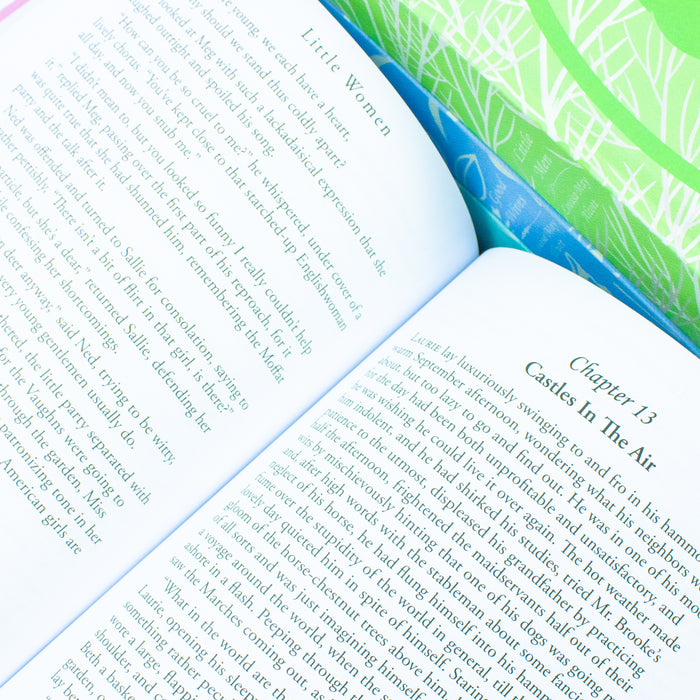 Little Women
are young, we each have a heart,
y should we stand thus coldly apart?
looked at Meg with such a lackadaisical expression that she
ghed outright and spoiled his song.
"How can you be so cruel to me?" he whispered, under cover of a
lively chorus. "You've kept close to that starched-up Englishwoman
all day, and now you snub me."
"I didn't mean to, but you looked so funny I really couldn't help
it," replied Meg, passing over the first part of his reproach, for it
was quite true that she had shunned him, remembering the Moffat
party and the talk after it.
Ned was offended and turned to Sallie for consolation, saying to
her pettishly, "There isn't a bit of flirt in that girl, is there?"
"Not a particle, but she's a dear," returned Sallie, defending her
while confessing her shortcomings.
deer anyway," said Ned, trying to be witty,
very young gentlemen usually do.
thered, the little party separated with
the Vaughns were going to
through the garden, Miss
patronizing tone in her
American girls are
Chapter 13
Castles In The Air
Laurie lay luxuriously swinging to and fro in his hamm
warm September afternoon, wondering what his neighbors w
about, but too lazy to go and find out. He was in one of his mo
for the day had been both unprofitable and unsatisfactory, and
he was wishing he could live it over again. The hot weather made
him indolent, and he had shirked his studies, tried Mr. Brooke's
patience to the utmost, displeased his grandfather by practicing
half the afternoon, frightened the maidservants half out of their
wits by mischievously hinting that one of his dogs was going
and, after high words with the stableman about some fan
neglect of his horse, he had flung himself into his ham
fume over the stupidity of the world in general, till
lovely day quieted him in spite of himself. Starin
gloom of the horse-chestnut trees above him
of all sorts and was just imagining himsel
a voyage around the world, when the s
ashore in a flash. Peeping through the
saw the Marches coming out, as i
"What in the world are th
Laurie, opening his sleep
something rather pecu
wore a large, flappin
shoulder, and c
Beth a baske
garden, o
lay be
Little
Men
Louisa May
Good
Wives